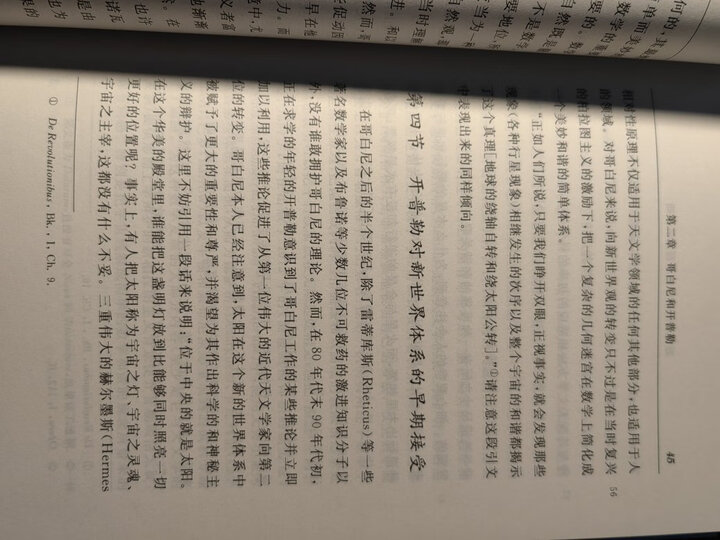 第二章 哥白尼和开普勒 45
相对性原理不仅适用于天文学领域的任何其他部分，也适用于人
的领域。对哥白尼来说，向新世界观的转变只不过是在当时复兴 56
的柏拉图主义的激励下，把一个复杂的几何迷宫在数学上简化成
一个美妙和谐的简单体系。
“正如人们所说，只要我们睁开双眼，正视事实，就会发现那些
现象(各种行星现象)相继发生的次序以及整个宇宙的和谐都揭示
了这个真理[地球的绕轴自转和绕太阳公转]。”①请注意这段引文
中表现出来的同样倾向。
第四节 开普勒对新世界体系的早期接受
在哥白尼之后的半个世纪，除了雷蒂库斯(Rheticus)等一些
著名数学家以及布鲁诺等少数几位不可救药的激进知识分子以
外，没有谁敢拥护哥白尼的理论。然而，在 80 年代末 90 年代初，
正在求学的年轻的开普勒意识到了哥白尼工作的某些推论并立即
加以利用，这些推论促进了从第一位伟大的近代天文学家向第二
位的转变。哥白尼本人已经注意到，太阳在这个新的世界体系中
被赋予了更大的重要性和尊严，并渴望为其作出科学的和神秘主
义的辩护。这里不妨引用一段话来说明：“位于中央的就是太阳。
在这个华美的殿堂里，谁能把这盏明灯放到比能够同时照亮一切
更好的位置呢？事实上，有人把太阳称为宇宙之灯、宇宙之灵魂、
宇宙之主宰，这都没有什么不妥。三重伟大的赫尔墨斯(Hermes
① De Revolutionibus, Bk. , I, Ch. 9.